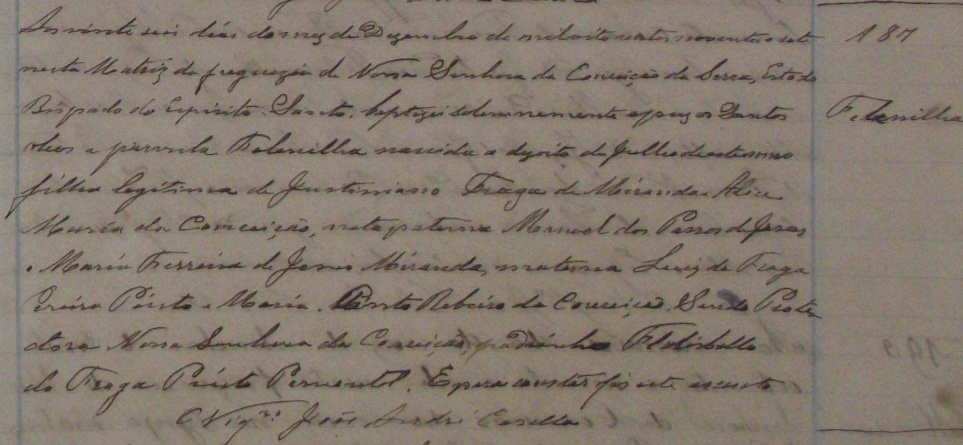 Aos vinte seis dias do mez de Dezembro de mil oito centos noventa e sete
nesta Matriz da freguezia de Nossa Senhora da Conceição da Serra, Estado
Bispado do Espirito Santo, baptizei solemnemente e puz os Santos
oleos a parvula Felenilha nascida a desoito de Julho deste anno
filha legitima de Justiniano Fraga de Miranda Alice
Maria da Conceição, neta paterna Manoel dos Passos de Jesus
e Maria Ferreira de Jesus Miranda, materna Luiz de Fraga
Pinto e Maria Pinto Ribeiro da Conceição. Sendo Prote
ctora Nossa Senhora da Conceição, padrinho
de Fraga Pinto Pimentel. E para constar fiz este assento
O Vigrº José
187
Felenilha